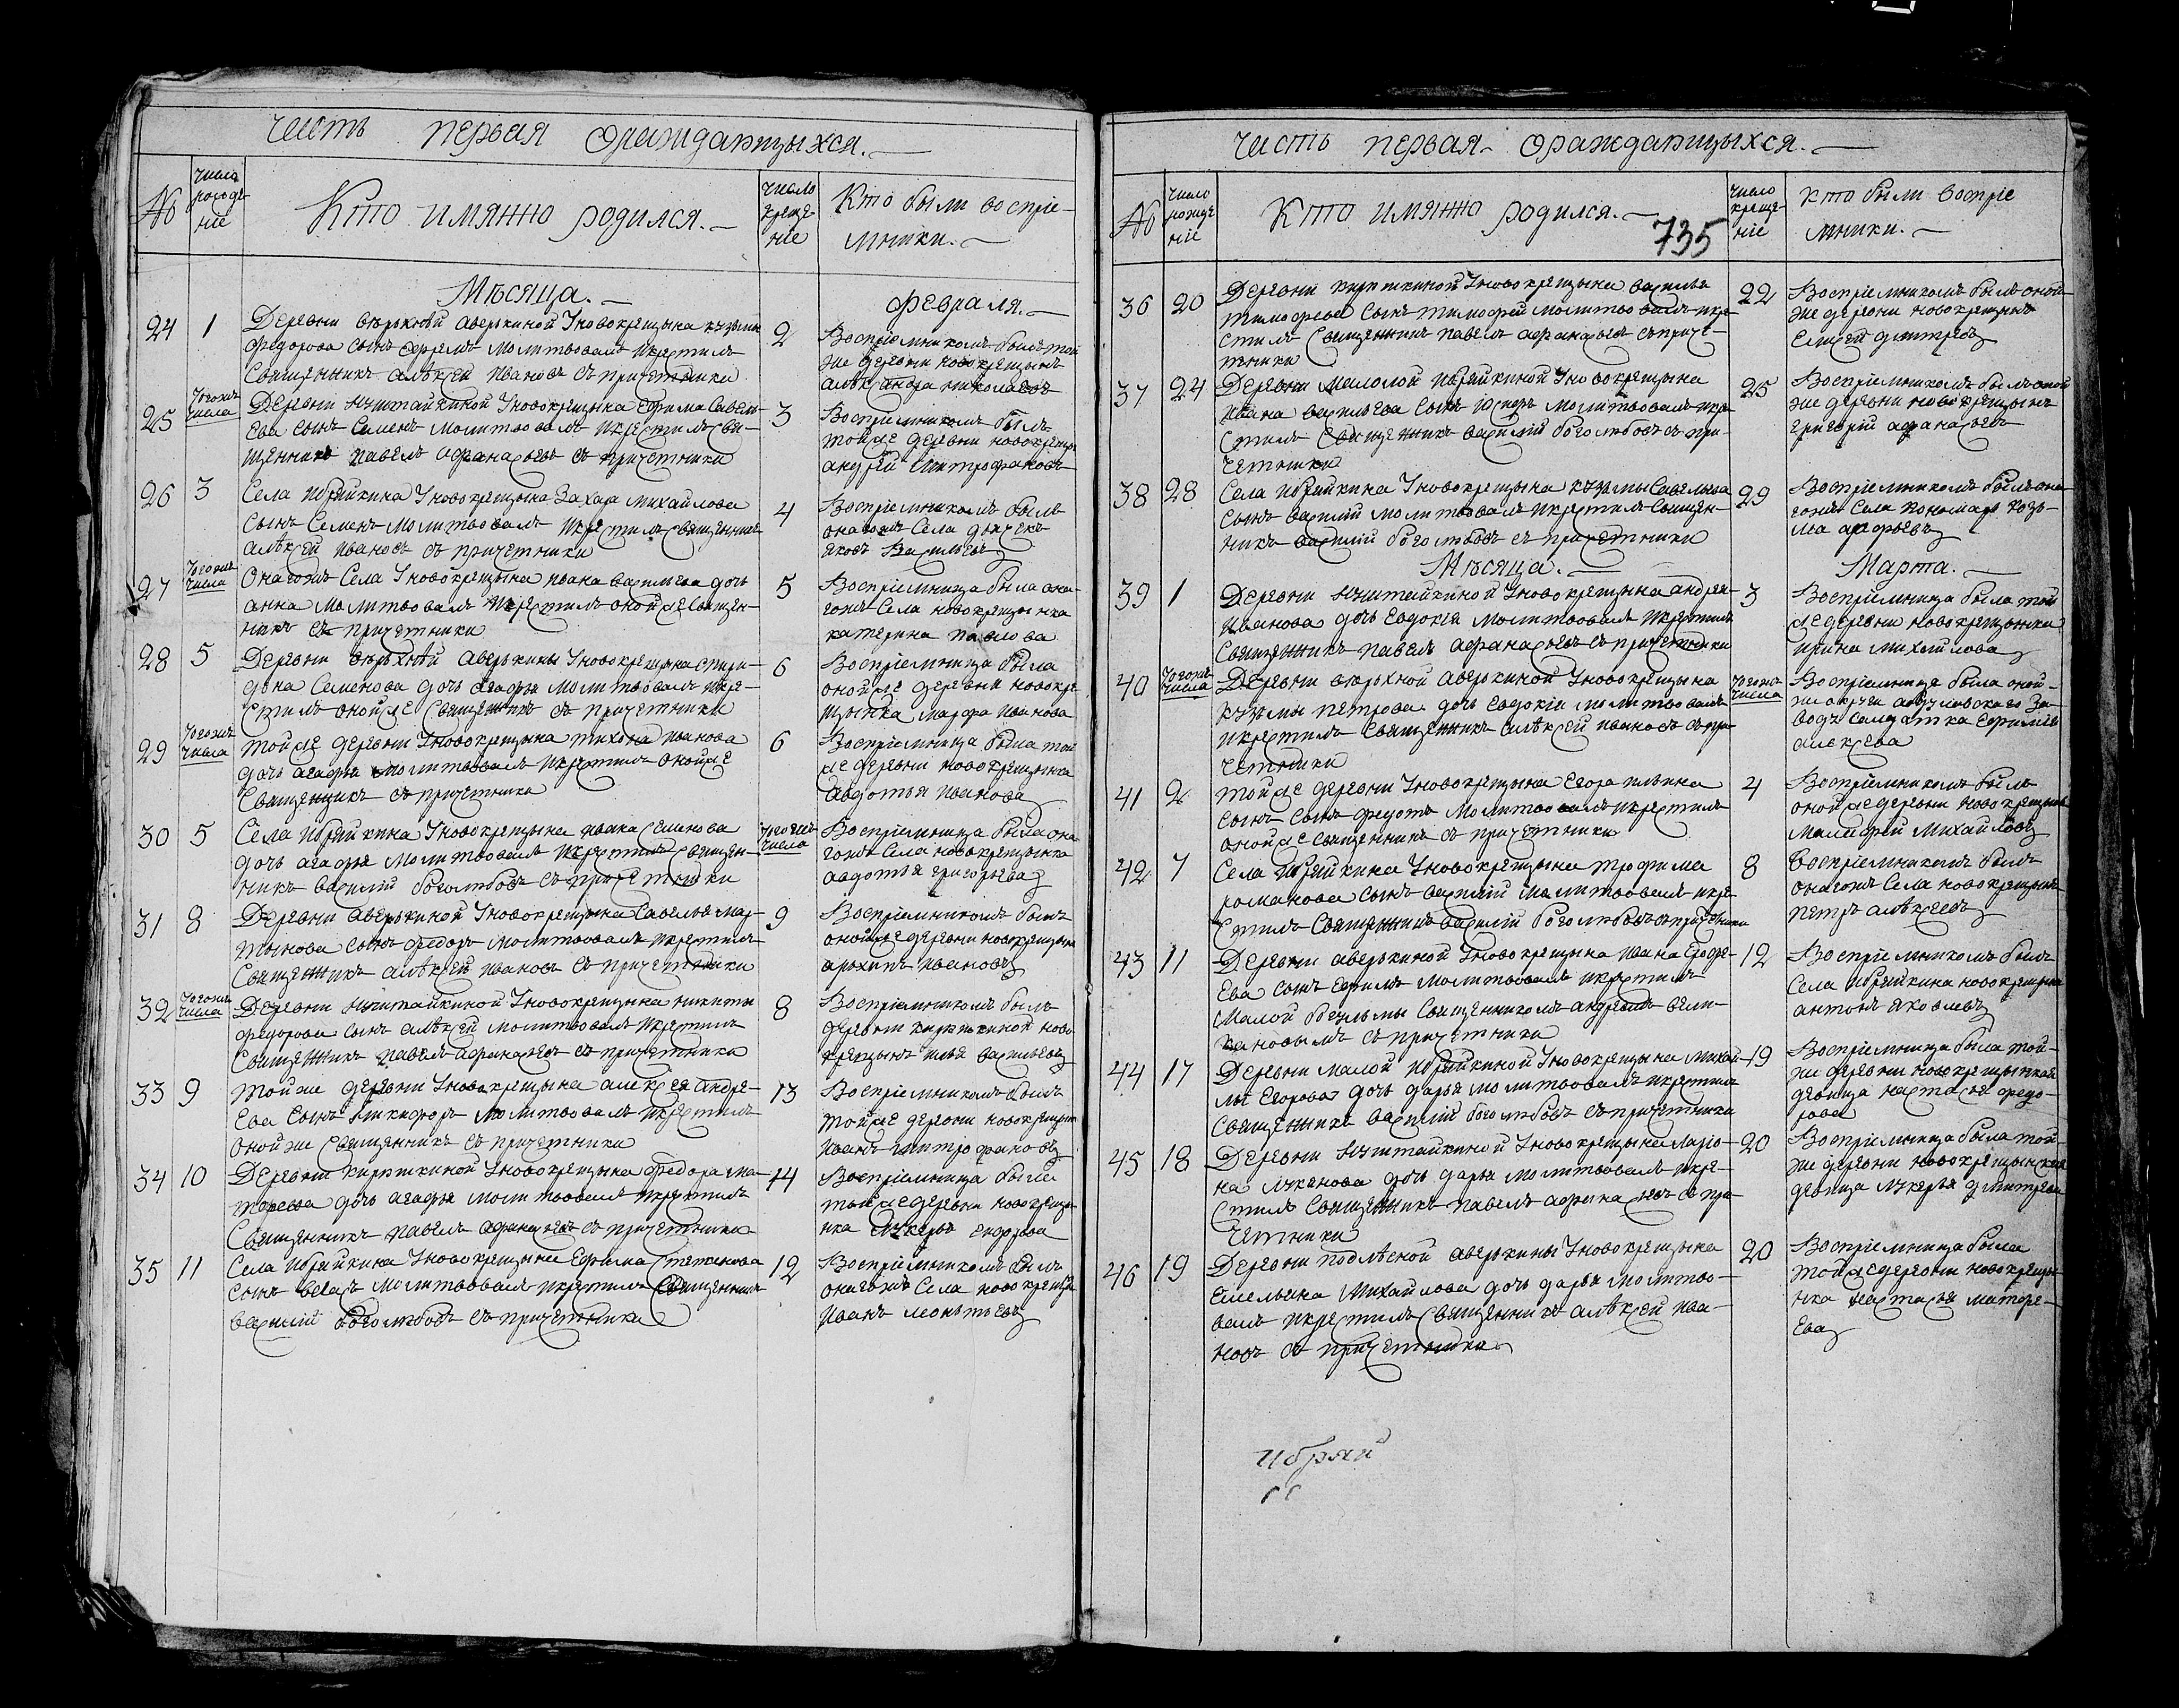 Часть первая ораждающихся.
№
число рожде ние
Кто имянно родился.
число креще ние
Кто были воспрiе-
мники.
Мѣсяца. Февраля.
24 1 Деревни верхней аверкиной Уновокрещына кузмы 2
федорова сынъ ефремъ молитвовалъ икрестилъ
Священникъ алѣксей Ивановъ съ причетники
Воспрiемникомъ былъ той
же деревни новокрещынъ
алѣксандра николаевъ
25 тогожъ числа Деревни Ычитайкиной Уновокрещына ефима Савель- 3
ева сынъ Семенъ молитвовалъ икрестилъ свя-
щенникъ павелъ афанасьевъ съ причетники
Воспрiемникомъ былъ
тойже деревни новокрещы
андрей Митрофановъ
26 3 Села Ибряйкина Уновокрещына Захара михайлова 4
сынъ Семенъ молитвовалъ икрестилъ священникъ
алѣксей Ивановъ съ причетники
Воспрiемникомъ былъ
онагожъ Села дьячекъ
яковъ Васильевъ
27 тогожъ числа Онагожъ Села Уновокрещына ивана васильева дочь 5
анна молитвовалъ икрестилъ онойже священ-
никъ съ причетники
Воспрiемница была она-
гожъ Села новокрещынка
катерина павлова
28 5 Деревни верхней аверкины Уновокрещына спири- 6
дона Семенова дочь агафья молитвовалъ икре-
стилъ онойже священникъ съ причетники
Воспрiемница была
онойже деревни новокре
щынка марфа иванова
29 тогожъ числа тойже деревни Уновокрещына тихона иванова 6
дочь агафья молитвовалъ икрестилъ онойже
Священникъ съ причетники
Воспрiемница была той
же деревни новокрещынка
авдотья иванова
30 5 Села Ибряйкина Уновокрещына ивана семенова тогожъ числа
дочь агафья молитвовалъ икрестилъ священ-
никъ василiй боголюбовъ съ причетники
Воспрiемница была она
гожъ Села новокрещынка
авдотья григорьева
31 8 Деревни аверкиной Уновокрещына савелья мар- 9
тынова сынъ федоръ молитвовалъ икрестилъ
Священникъ алѣксей ивановъ съ причетники
Воспрiемникомъ былъ
онойже деревни новокрещынъ
архипъ ивановъ
32 тогожъ числа Деревни Ычитайкиной Уновокрещына никиты 8
федорова сынъ алѣксей молитвовалъ икрестилъ
Священникъ павелъ афанасьевъ съ причетники
Воспрiемникомъ былъ
деревни кирюшкиной ново
крещынъ илья васильевъ
33 9 тойже деревни Уновокрещына алексея андре- 13
ева сынъ никифоръ молитвовалъ икрестилъ
онойже священникъ съ причетники
Воспрiемникомъ былъ
тойже деревни новокрещынъ
иванъ митрофановъ
34 10 Деревни кирюшкиной Уновокрещына федора ма- 14
тфеева дочь агафья молитвовалъ икрестилъ
Священникъ павелъ афанасьевъ съ причетники
Воспрiемница была
тойже деревни новокрещы-
нка лукерья
35 11 Села Ибряйкина Уновокрещына ефима степанова 12
сынъ власъ молитвовалъ икрестилъ священникъ
василiй боголюбовъ съ причетники
Воспрiемникомъ былъ
онагожъ Села новокрещынъ
иванъ леонтьевъ
Часть первая ораждающихся.
№
число рожде нiе
Кто имянно родился.
735
число креще- нiе
Кто были вопрiе
мники.
36 20 Деревни кирюшкиной Уновокрещына василья 22
тимофеева сынъ тимофей молитвовалъ икре-
стилъ священникъ павелъ афанасьевъ съприче-
тники
Воспрiемникомъ былъ оной
же деревни новокрещынъ
Елисей дмитрiевъ
37 24 Деревни Малолой Ибряйкиной Уновокрещына 25
ивана васильева сынъ молитвовалъ икре-
стилъ священникъ василiй боголюбовъ съ при-
четники
Воспрiемникомъ былъ оной
же деревни новокрещынъ
григорiй афанасьевъ
38 28 Села Ибряйкина Уновокрещына кузмы савельева 29
сынъ василiй молитвовалъ икрестилъ священ-
никъ василiй боголюбовъ съ причетники
Воспрiемникомъ былъ она
гожъ Села пономарь козь-
ма
Мѣсяца. Марта.
39 1 Деревни Ычитайкиной Уновокрещына андрея 3
Иванова дочь Евдокiя молитвовалъ икрестилъ
Священникъ павелъ афанасьевъ съ причетники
Воспрiемница была той
же деревни новокрещынка
ирина михайлова
40 тогожъ числа Деревни верхной аверкиной Уновокрещына тогожъ числа
кузмы петрова дочь евдокiя молитвовалъ
икрестилъ священникъ алѣксей ивановъ съпри-
четники
Воспрiемница была оной-
же округи За-
водъ салдатка Ефимiя
алексеева
41 2 тойже деревни Уновокрещына Егора ильина 4
сынъ федотъ молитвовалъ икрестилъ
онойже священникъ съ причетники
Воспрiемникомъ былъ
онойже деревни новокрещынъ
Малафей Михайловъ
42 7 Села Ибряйкина Уновокрещына трофима 8
романова сынъ василiй молитвовалъ икре-
стилъ Священникъ василiй боголюбовъ съпричетники
Воспрiемникомъ былъ
онагожъ Села новокрещынъ
петръ алѣксеевъ
43 11 Деревни аверкиной Уновокрещына ивана Ерофе- 12
Ева сынъ Ефимъ молитвовалъ икрестилъ
Малой бугульмы Священникомъ андреемъ вели-
кановымъ съ причетники
Воспрiемникомъ былъ
Села Ибряйкина новокрещынъ
антонъ яковлевъ
44 17 Деревни малой Ибряйкиной Уновокрещына Михай- 19
лы Егорова дочь дарья молитвовалъ икрестилъ
Священникъ василiй боголюбовъ съ причетники
Воспрiемница была той-
же деревни новокрещынкая
девица настасья федо-
рова
45 18 Деревни Ычитайкиной Уновокрещына ларiо- 20
на луканова дочь дарья молитвовалъ икре-
стилъ Священникъ павелъ афанасьевъ съ при-
четники
Воспрiемница была той-
же деревни новокрещынская
девица лукерья дмитрева
46 19 Деревни подлѣсной аверкины Уновокрещына 20
Емельяна Михайлова дочь дарья молитво-
валъ икрестилъ священникъ алѣксей ива-
новъ съ причетники
Воспрiемница была
тойже деревни новокрещы
нка настасья матфе-
Ева
Ибряй